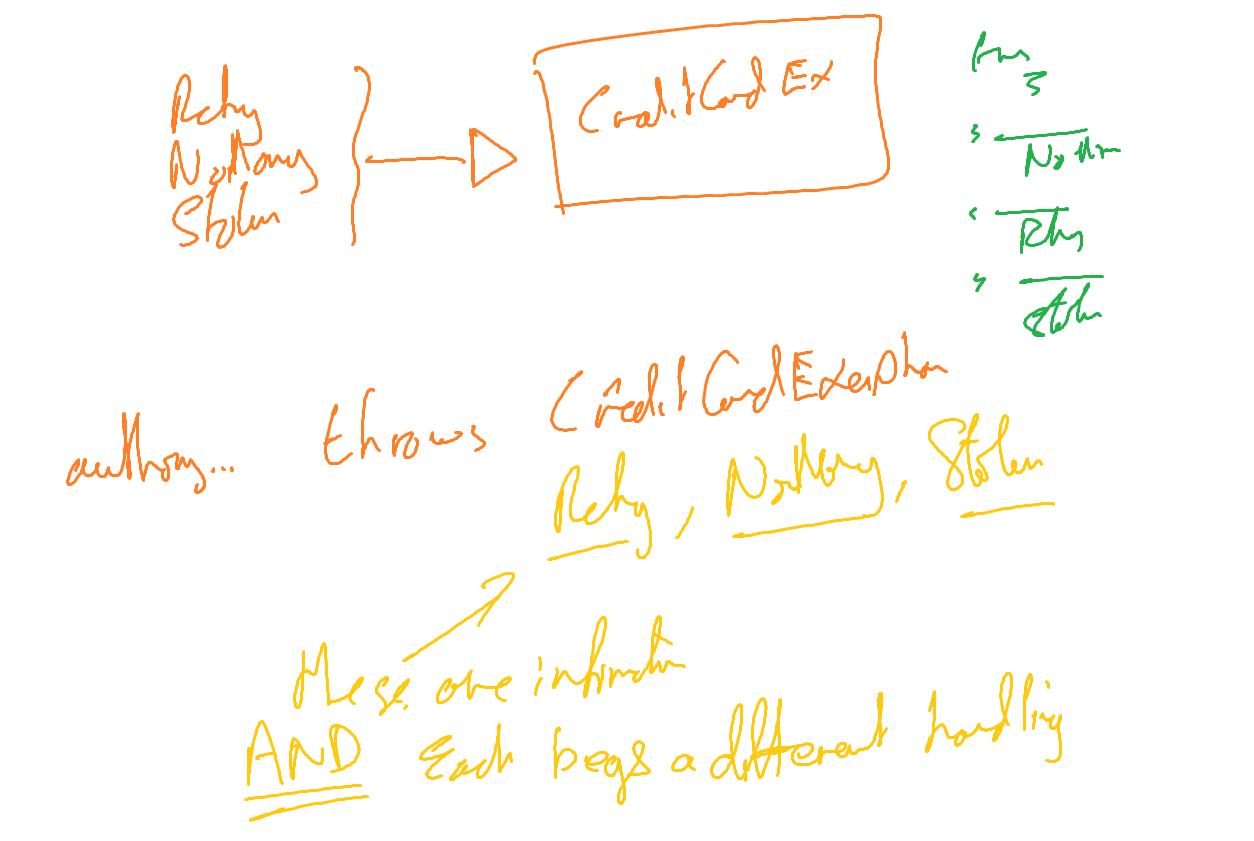 Retry
NoMoney
Stolen
CreditCard Ex
Ans
3
Retry
Stolen
authory... throws CreditCardException
Retry, NoMoney, Stolen
these are information
AND Each begs a different handling